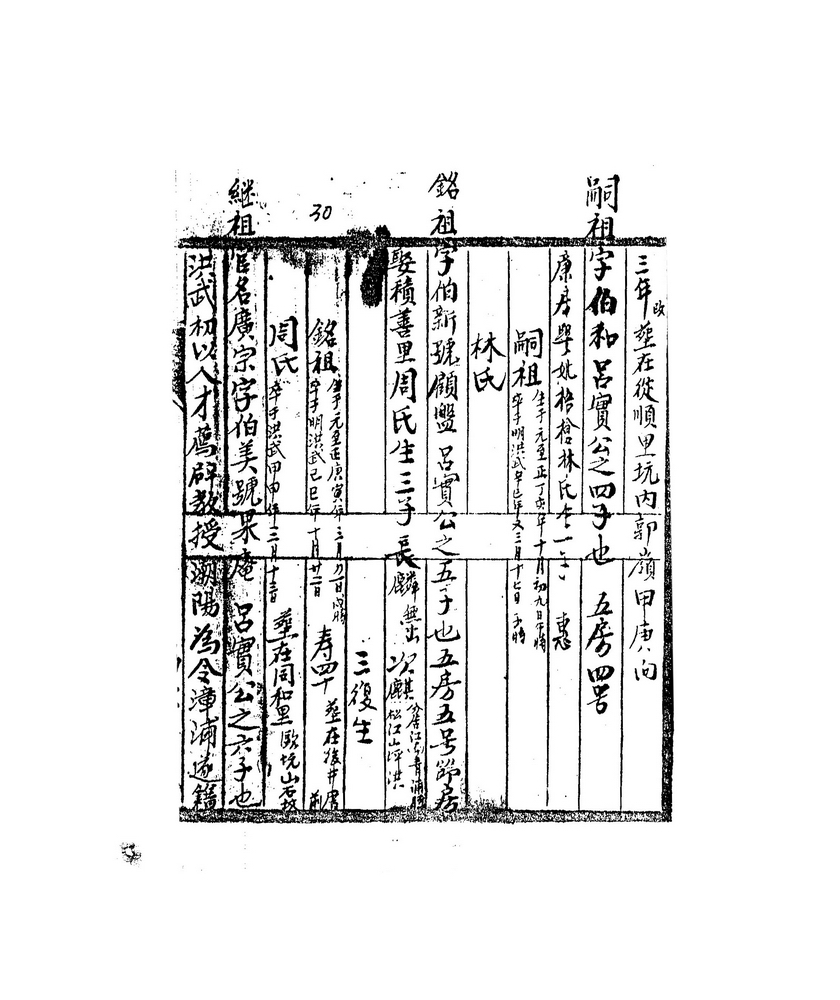 三年改塟在從順里坑內郭嶺甲庚向
嗣祖字伯和呂實公之四子也 五房四号
康房娶姚梧槍林氏生一子 惠
嗣祖 生于元至正丁亥年十月初九日午時
卒于明洪武辛巳年又三月十七日 子時
林氏
銘祖字伯新號顧盤 呂實公之五子也五房五号節房
娶積善里周氏生三子 長麟無出 次麒 居江南青浦縣
麒 松江山坪洪
三復生
銘祖 生于元至正庚寅年三月 日 時 寿四十 塟在後井 前
卒于明洪武己巳年十月廿二日
周氏 卒于洪武甲申年三月十三日 塟在同和里 歐坑山石鼓
継祖 官名廣宗字伯美號果庵 呂實公之六子也
洪武初以人才薦辟教授潮陽為令漳浦遂籍
30